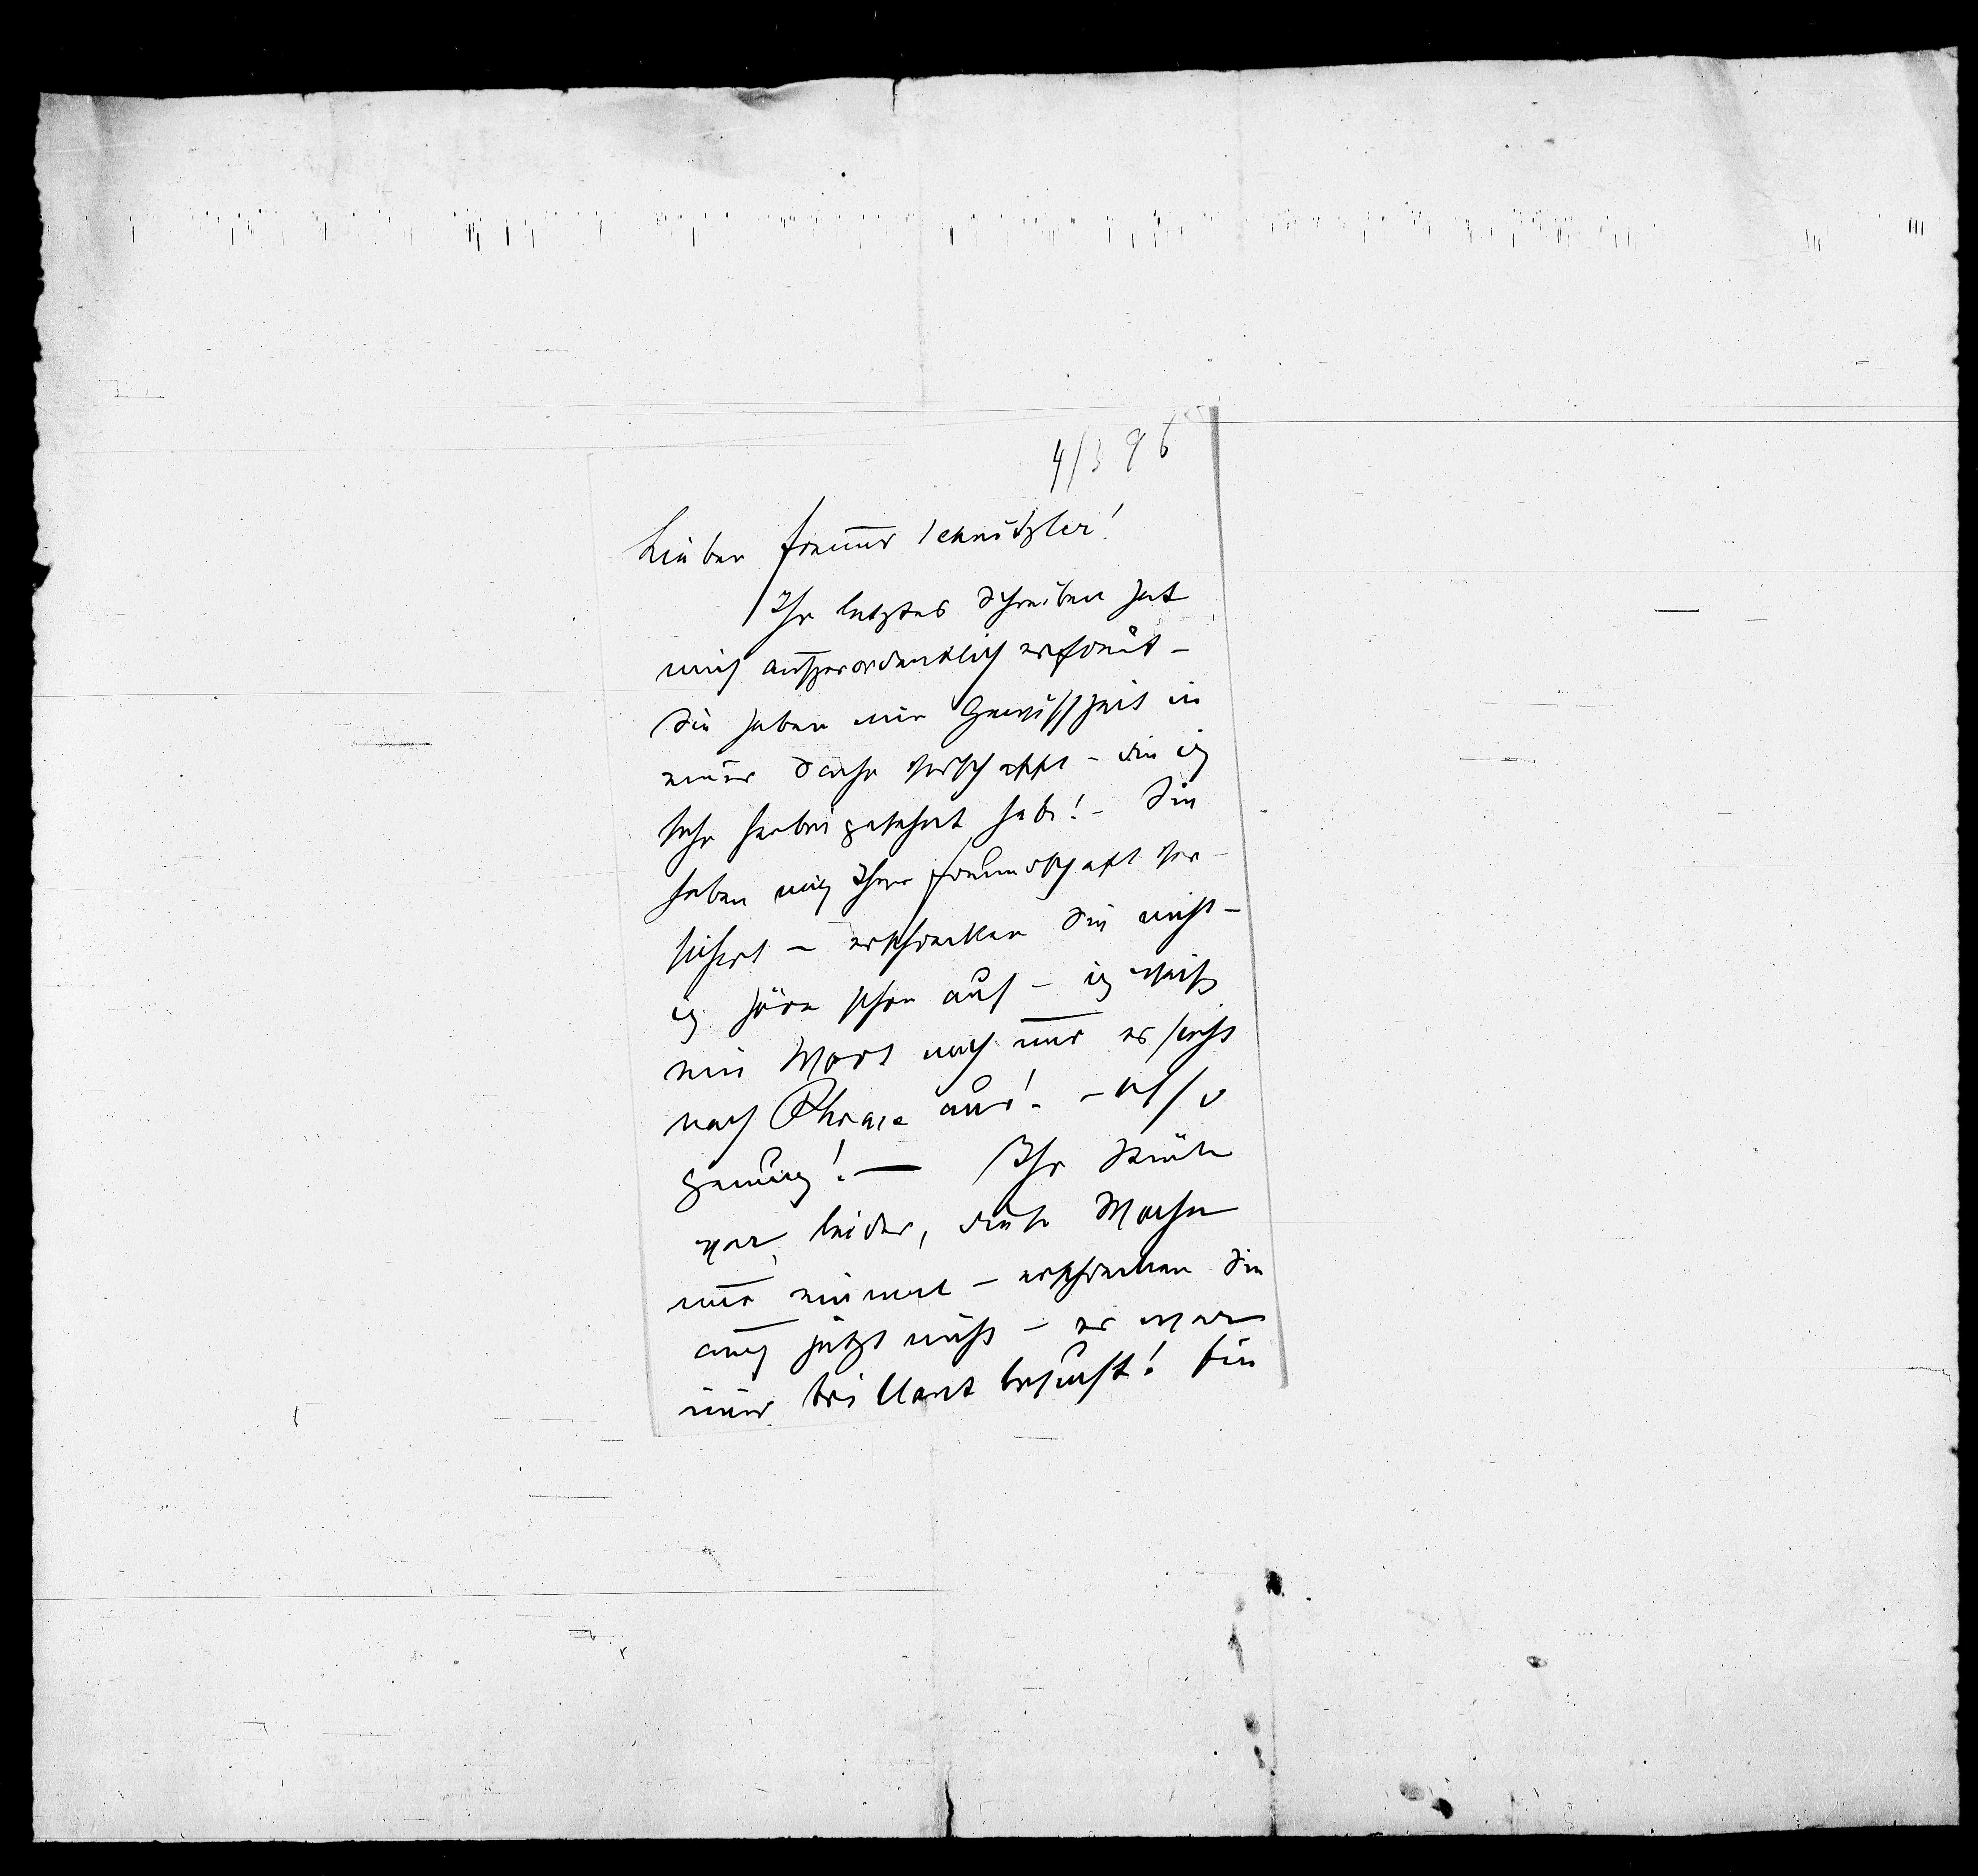 4/3 96
Lieber Freund Schnitzler!
Ihr letztes Schreiben hat
mich außerordentlich erfreut –
Sie haben mir Gewissheit in
einer Sache verschafft – die ich
sehr herbeigesehnt habe! – Sie
haben mich Ihrer Freundschaft ver-
sichert – erschrecken Sie nicht –
ich höre schon auf – ich weiß
ein Wort noch und es sieht
nach Phrase aus! – Also
genug! — Ihr Stück
war, leider, diese Woche
nur einmal – erschrecken Sie
auch jetzt nicht – es war
immer brillant besucht! Ein